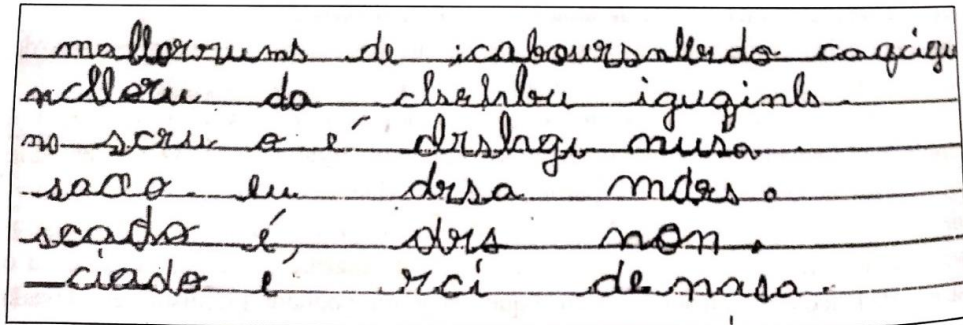 mallorrums de icaboursnlerdo cagcigu
nclloru da clsehbu iguginls
no scru o e´ drslagi nusa
saco. eu drsa mders.
scado é, drs non.
–ciado e rci de nasa.